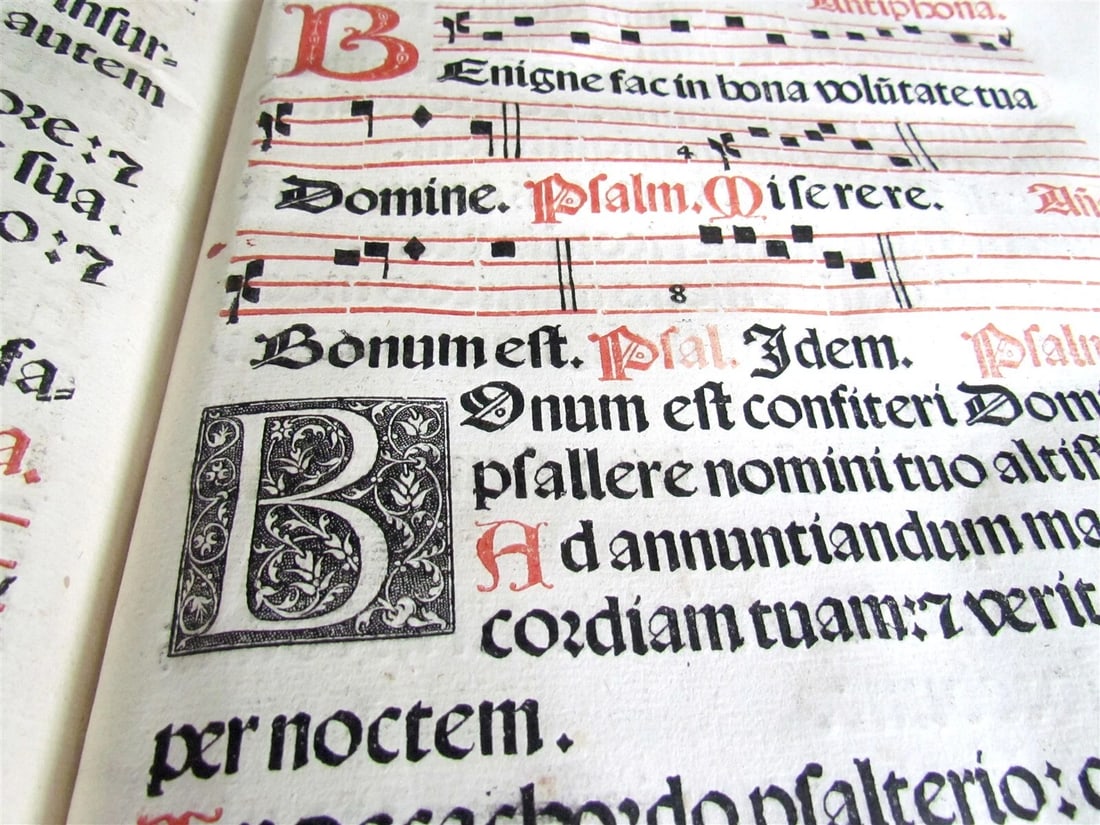 insur-
autem
ore:⁊
sua.
o:⁊
fa-
a.
Antiphona.
BEnigne fac in bona volūtate tua
4
Domine. Psalm. Miserere. Añ
8
Bonum est. Psal. Idem. Psalm
BOnum est confiteri Dom
psallere nomini tuo altiss
Ad annuntiandum ma
cordiam tuam:⁊ verit
per noctem.
psalterio: